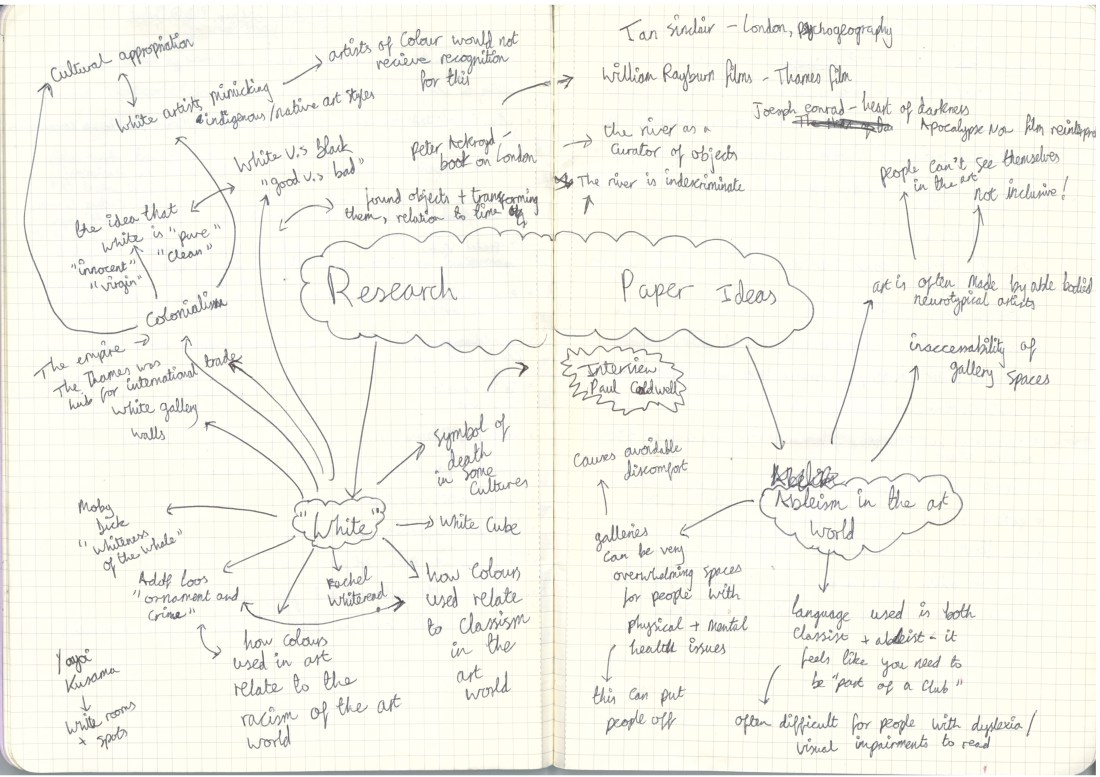 Cultural appropriation
White artists mimicking
indigenous/native art styles
artists of Colour would not
recieve recognition
for this
White v.s black
"good v.s bad"
the idea that
white is "pure"
"innocent" "clean"
"virgin"
Colonialism
The empire
The Thames was
hub for international trade
white galley
walls
Peter Ackroyd -
book on London
found objects + transforming
them, relation to time
Research
Paper Ideas
Ian Sinclair - London, psychogeography
William Rayburn films - Thames film
Joesph conrad - heart of darkness
Apocalypse Now film reinterpre
the river as a
curator of objects
The river is indescriminate
people can't see themselves
in the art
not inclusive!
art is often made by able bodied
neurotypical artists
inaccessability of
gallery spaces
Interview
Paul Coldwell
"White"
Symbol of
death
in some
Cultures
White Cube
Moby
Dick
"Whiteness
of the whale"
Adolf loos
"ornament and
Crime"
Rachel
Whiteread
how Colours
used relate
to Classism
in the
art
world
how colours
used in art
relate to the
racism of the art
world
Yayoi
Kusama
white rooms
+ spots
Ableism in the art
world
Causes avoidable
discomfort
galleries
can be very
overwhelming spaces
for people with
physical + mental
health issues
this can put
people off
language used is both
classist + ableist - it
feels like you need to
be "part of a Club"
often difficult for people with dyslexia/
visual impairments to read